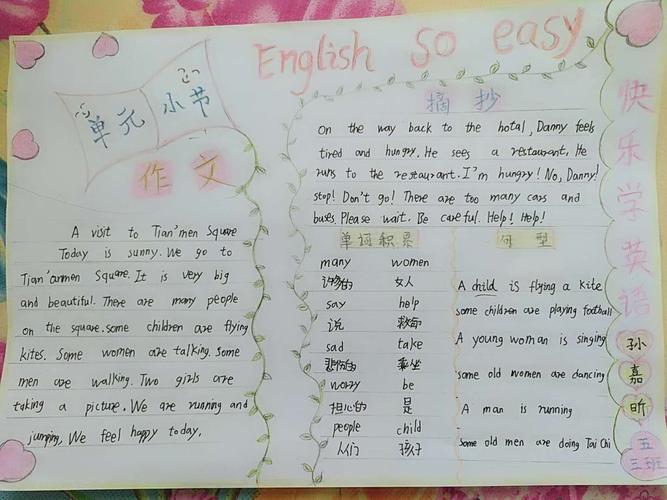 English so easy
单元小节
作文
A visit to Tian'men Square
Today is sunny. We go to
Tian'anmen Square. It is very big
and beautiful. There are many people
on the square. some children are flying
kites. Some women are talking. Some
men are walking. Two girls are
taking a picture. We are running and
jumping, We feel happy today.
摘抄
On the way back to the hotal, Danny feels
tired and hungry. He sees a restaurant. He
runs to the restaurant. I'm hungry! No, Danny!
stop! Don't go! There are too many cars and
buses Please wait. Be careful. Help! Help!
单词积累
many women
许多的 女人
say help
说 救命
sad take
悲伤的 乘坐
worry be
担心的 是
people child
人们 孩子
句型
A child is flying a kite
some children are playing football
A young woman is singing
some old women are dancing
A man is running
Some old men are doing Tai Chi
快乐学英语
孙嘉昕
五
三班